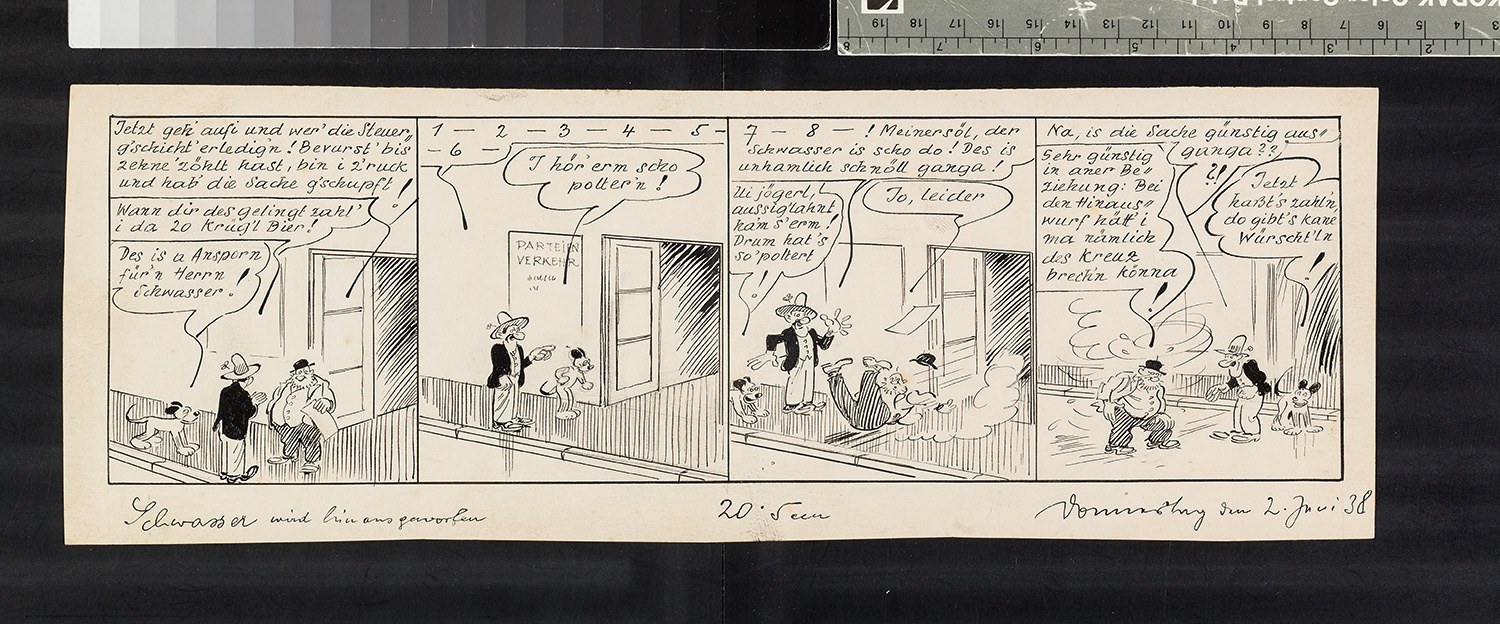 Jetzt geh' aufi und wer' die Steuer„
g'schicht' erledig'n! Bevurst' bis
zehne' zöhlt hast, bin i z'ruck
und hab' die Sache g'schupft!
Wann dir des gelingt zahl'
i da 20 Krüg'l Bier!
Des is a Ansporn
für'n Herrn
Schwasser!
1 — 2 — 3 — 4 — 5 -
- 6 —
I hör' erm scho
polter'n!
PARTEIEN
VERKEHR
7 — 8 — ! Meinersöl, der
Schwasser is scho do! Des is
unhamlich schnöll ganga!
Ui jögerl,
aussig'lahnt
ham s'erm!
Drum hat's
so' poltert
Jo, leider
Na, is die Sache günstig aus„
ganga??
Sehr günstig
in aner Be„
ziehung: Bei
den Hinaus„
wurf hätt' i
ma nämlich
des Kreuz
brech'n könna!
?!
Jetzt
haßt's zahl'n,
do gibt's kane
Würscht'ln!
Schwasser wird hinausgeworfen
20·5 cm
Donnerstag den 2. Juni 38
KODAK Color Control
19 18 17 16 15 14 13 12 11 10 9 8 7 6 5 4
8 7 6 5 4 3 2